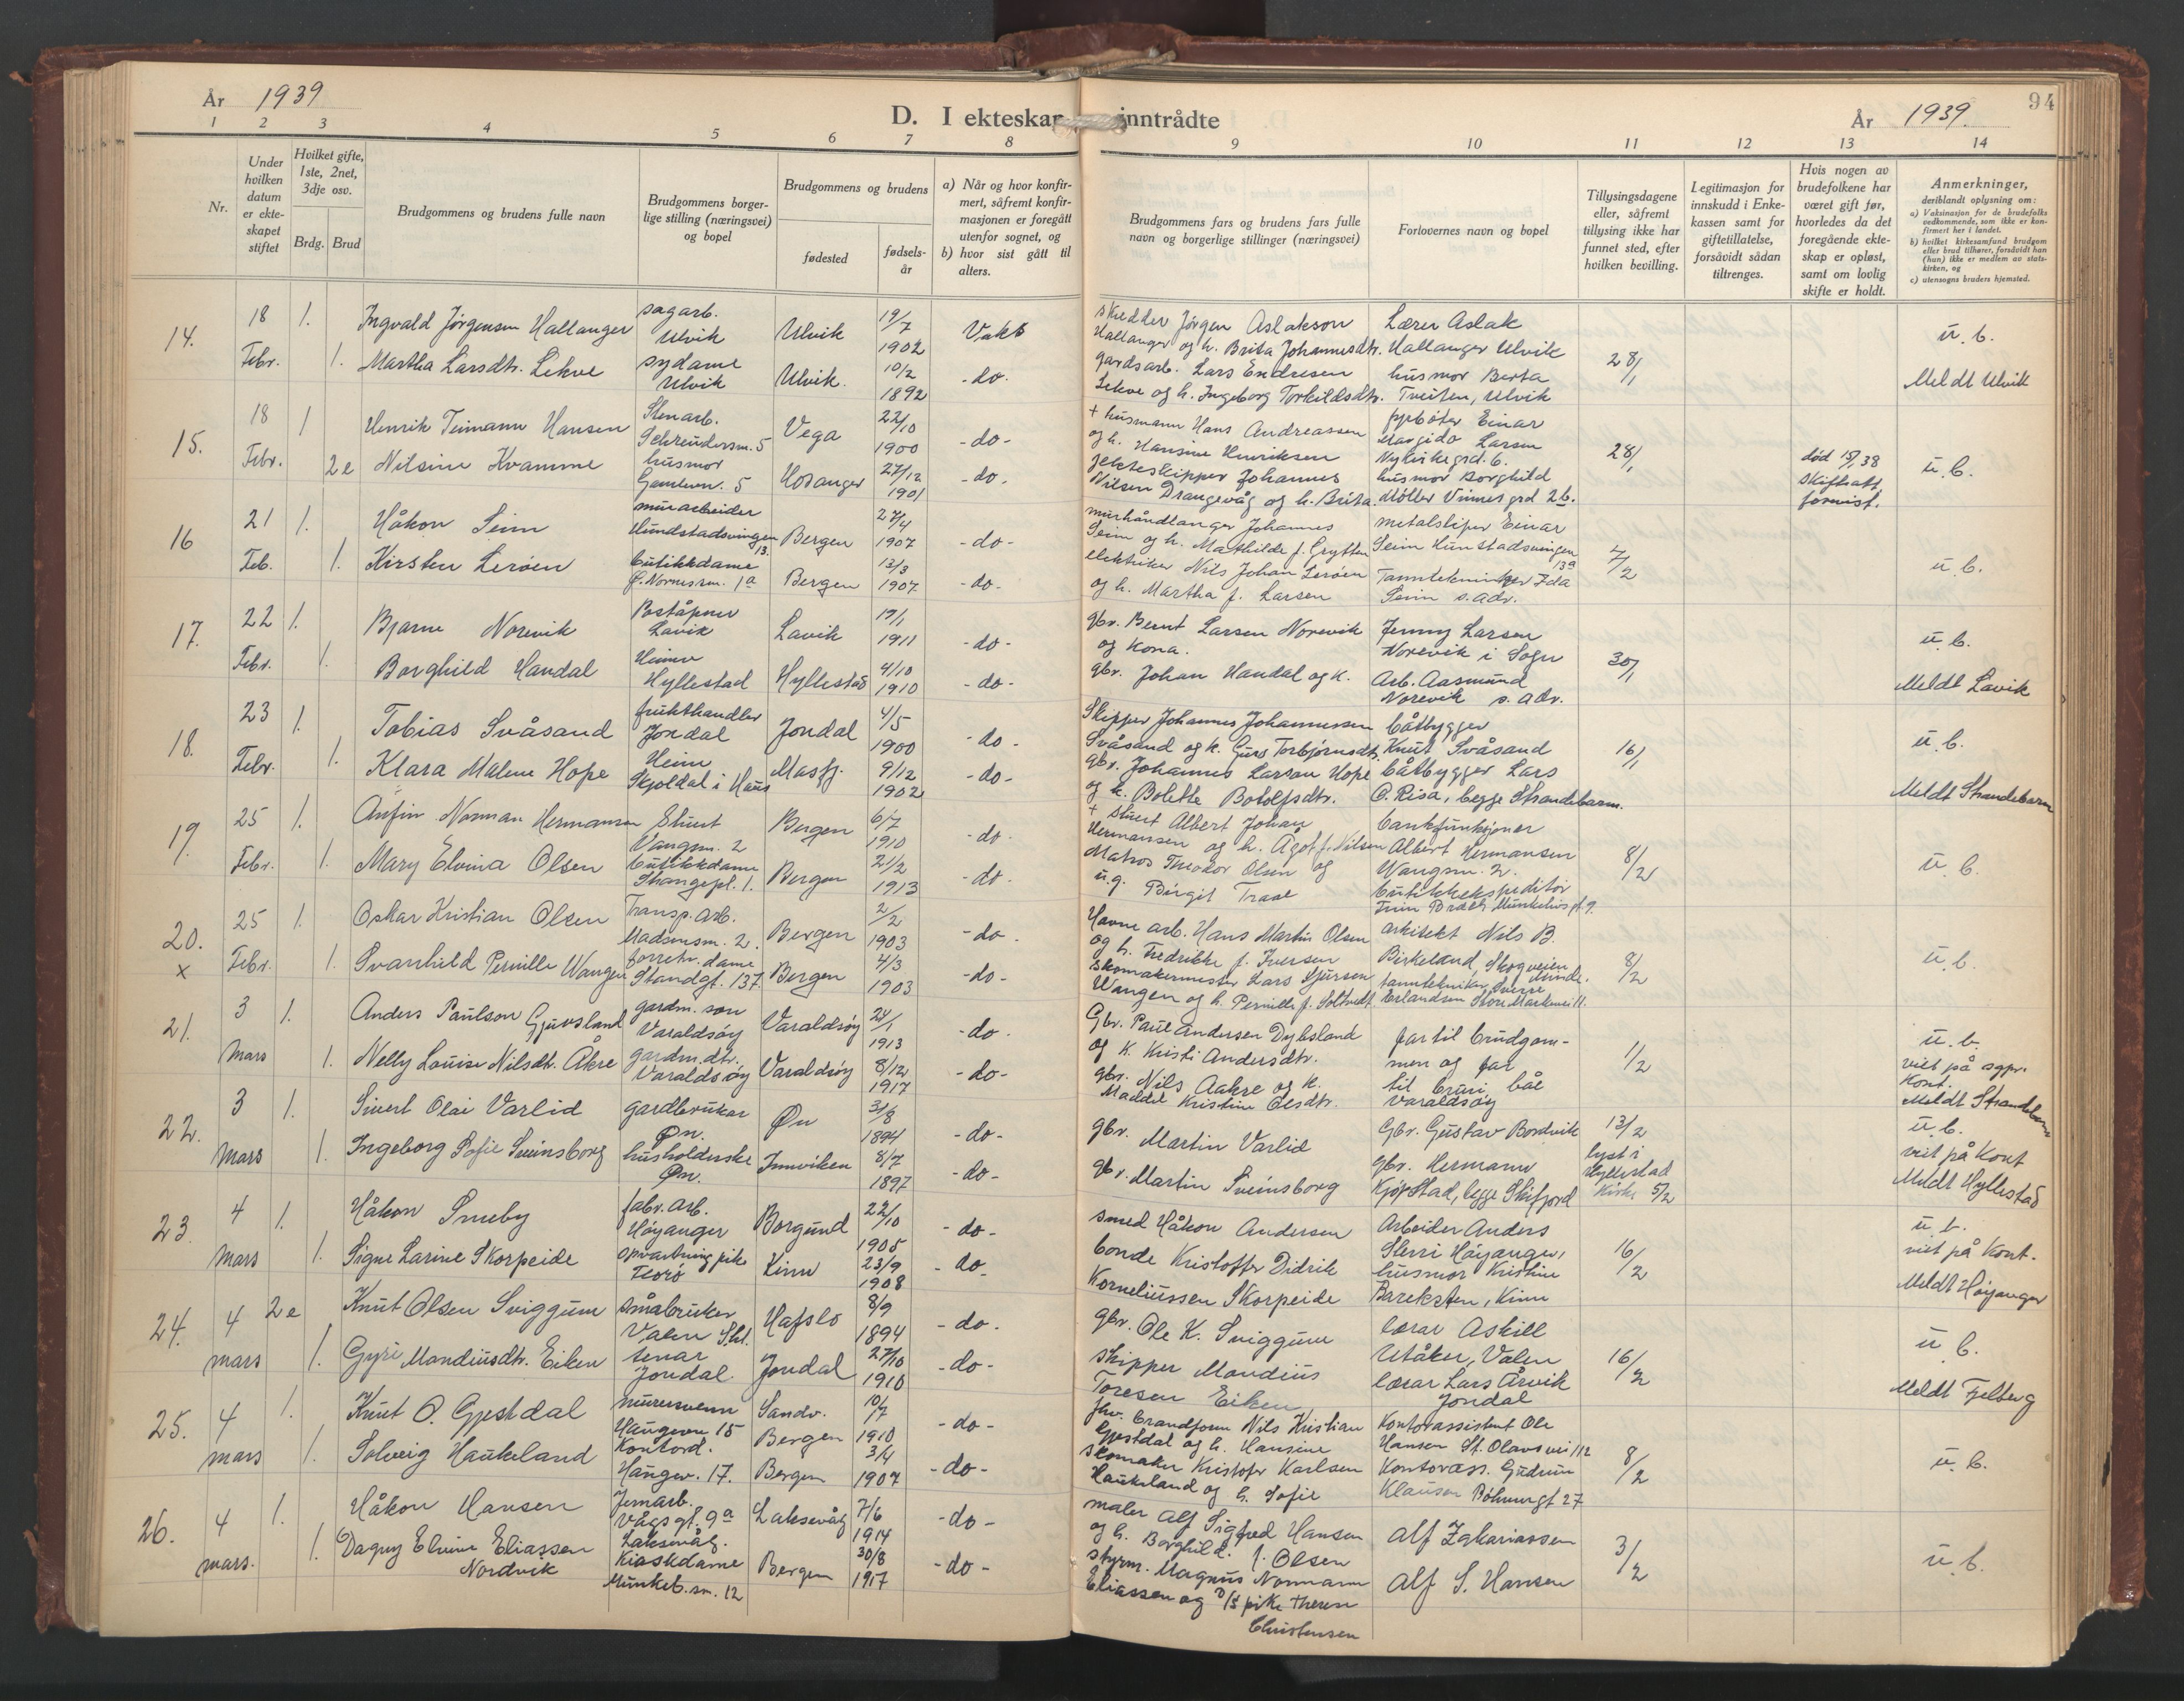 År 1939
D. I ekteskap inntrådte
År 1939.
94
1 2 3 4 5 6 7 8 9 10 11 12 13 14
Nr.
Under hvilken datum er ekte-skapet stiftet
Hvilket gifte, 1ste, 2net, 3dje osv.
Brdg. Brud
Brudgommens og brudens fulle navn
Brudgommens borger-lige stilling (næringsvei) og bopel
Brudgommens og brudens
fødested
fødsels-år
a) Når og hvor konfir-mert, såfremt konfir-masjonen er foregått utenfor sognet, og
b) hvor sist gått til alters.
Brudgommens fars og brudens fars fulle navn og borgerlige stillinger (næringsvei)
Forlovernes navn og bopel
Tillysingsdagene eller, såfremt tillysing ikke har funnet sted, efter hvilken bevilling.
Legitimasjon for innskudd i Enke-kassen samt for giftetillatelse, forsåvidt sådan tiltrenges.
Hvis nogen av brudefolkene har været gift før, hvorledes da det foregående ekte-skap er opløst, samt om lovlig skifte er holdt.
Anmerkninger, deriblandt oplysning om:
a) Vaksinasjon for de brudefolks vedkommende, som ikke er kon-firmert her i landet.
b) hvilket kirkesamfund brudgom eller brud tilhører, forsåvidt han (hun) ikke er medlem av stats-kirken, og
c) utensogns bruders hjemsted.
14. 18 Febr. 1. 1.
Ingvald Jørgensen Hallanger sagarb. Ulvik Ulvik 19/7 1902 Vaks
Martha Larsdtr. Lekve sydame Ulvik Ulvik. 10/2 1892 -do-
skredder Jørgen Aslakson
Hallanger og h. Brita Johannesdtr.
gardsarb. Lars Endresen
Lekve og h. Ingeborg Torkildsdtr.
Lærer Aslak
Hallanger Ulvik
husmor Berta
Tveiten, Ulvik
28/1
u. b.
Meldt Ulvik
15. 18 Febr. 1 2e
Henrik Teimann Hansen Stenarb. Schreudersm. 5 Vega 22/10 1900 -do-
Nilsine Kvamme husmor 5 Hosanger 27/12 1901 -do.
+ husmann Hans Andreassen
og h. Hansine Henriksen
jekteskipper Johannes
Nilsen Drangevåg og h. Brita.
fyrbøter Einar
Margido Larsen
Nykirkegrd. 6.
husmor Borghild
Møller Vinnesgrd 26.
28/1
død 15/1 38
skifteatt.
forevist.
u. b.
16 21 Feb. 1. 1.
Håkon Seim murarbeider Hunstadsvingen 13. Bergen 27/4 1907 -do-
Kirsten Lerøen butikkdame 1a Bergen 13/3 1907 -do-
murhåndlanger Johannes
Seim og h. Mathilde f. Grytten
elektriker Nils Johan Lerøen
og h. Martha f. Larsen
metalsliper Einar
Seim Hunstadsvingen 13a
Tanntekniker Ida
Seim s. adr.
7/2
u. b.
17. 22 Febr. 1. 1.
Bjarne Norevik Poståpner Lavik Lavik 19/1 1911 -do-
Borghild Handal Heime Hyllestad Hyllestad 4/10 1910 -do-
gbr. Bernt Larsen Norevik
og Kona.
gbr. Johan Handal og k.
Jenny Larsen
Norevik i Sogn
Arb. Aasmund
Norevik s. adr.
30/1
u. b.
Meldt Lavik
18. 23 Febr. 1. 1.
Tobias Svåsand frukthandler Jondal Jondal 4/5 1900 -do-
Klara Malene Hope Heim Skjoldal i Haus Masfj. 9/12 1902 -do-
Skipper Johannes Johannessen
Svåsand og k. Guro Torbjørnsdtr.
gbr. Johannes Larson Hope
og k. Bolette Botolfsdtr.
båtbygger
Knut Svåsand
båtbygger Lars
O. Risa, begge Strandebarm.
16/1
u. b.
Meldt Strandebarm
19. 25 Febr. 1. 1.
Anfin Norman Hermansen Stuert Vangsm. 2 Bergen 6/7 1910 -do-
Mary Elvina Olsen butikkdame Stangepl. 1. Bergen 21/2 1913 -do-
+ stuert Albert Johan
Hermansen og h. Ågot f. Nilsen
Matros Theodor Olsen og
u.g. Birgit Traae
bankfunksjonær
Albert Hermansen
Wangsm. 2.
butikkekspeditør
8/2
u. b.
20. x 25 Febr. 1. 1.
Oskar Kristian Olsen Transp. arb. Madsnesm. 2. Bergen 2/2 1903 -do-
Svanhild Pernille Wangen forretn. dame Standgt. 137. Bergen 4/3 1903 -do-
Havne arb. Hans Martin Olsen
og h. Fredrikke f. Iversen
skomakermester Lars Sjursen
Wangen og h. Pernille f. Soltvedt
arkitekt Nils B.
Birkeland, Skogveien Minde.
tanntekniker Sverre
Erlandsen Store Markevei 11.
8/2
u. b.
21. 3 Mars 1. 1.
Anders Paulson Gjuvsland gardm. son Varaldsøy Varaldsøy 24/1 1913 -do-
Nelly Louise Nilsdtr. Åkre gardm. dtr. Varaldsøy Varaldsøy 8/12 1917 -do-
Gbr. Paul Andersen Dybsland
og K. Kristi Andersdtr.
gbr. Nils Aakre og k.
Maddel Kristine Olsdtr.
far til brudgom-
men og far
til bruri, båe
Varaldsøy
1/2
u. b.
viet på sgpr.
Kont.
Meldt Strandebarm
22. 3 Mars 1. 1.
Sivert Olai Varlid gardbrukar Øn. Øn 31/8 1894 -do-
Ingeborg Sofie Sveinsborg husholderske Øn. Innviken 8/7 1897 -do-
gbr. Martin Varlid
gbr. Martin Sveinsborg
Gbr. Gustav Bordvik
gbr. Hermann
Kjørstad, begge Skifjord
13/2
lyst i
Hyllestad
Kirke 5/2
u. b.
viet på Kont
Meldt Hyllestad
23. 4 Mars 1. 1.
Håkon Smeby fabr. arb. Høyanger Borgund 22/10 1905 -do-
Signe Larine Skorpeide opvartningspike Florø Kinn 23/9 1908 -do-
smed Håkon Andersen
bonde Kristoffer Didrik
Korneliussen Skorpeide
Arbeider Anders
Sterri Høyanger,
husmor Kristine
Bareksten, Kinn
16/2
u. b.
viet på Kont.
Meldt Høyanger
24. 4 mars 2e 1.
Knut Olsen Sviggum småbruker Valen Shl. Hafslo 8/9 1894 -do-
Gyri Mandiusdtr. Eiken tenar Jondal. Jondal 27/10 1910 -do-
gbr. Ole K. Sviggum
skipper Mandius
Toresen Eiken
lærar Askill
Utåker, Valen
lærar Lars Årvik
Jondal
16/2
u. b.
Meldt Fjelberg
25. 4 mars 1. 1.
Knut O. Gjestdal muresvenn Haugevn 15 Sandv. Bergen 10/7 1910 -do-
Solveig Haukeland Kontord. Haugev. 17. Bergen 3/4 1907 -do-
fhv. brandform Nils Kristian
Gjestdal og h. Hansine
skomaker Kristofer Karlsen
Haukeland og h. Sofie
Kontorassistent Ole
Hansen St. Olavs vei 112
Kontorass. Gudrun
Klausen Bøhmergt 27
8/2
u. b.
26. 4 mars. 1. 1.
Håkon Hansen Jernarb. Vågsgt. 9a Laksevåg. Laksevåg 7/6 1914 -do-
Dagny Elvine Eliassen Nordvik Kioskdame Munkeb. sm. 12 Bergen 30/8 1917 -do-
maler Alf Sigfred Hansen
og h. Borghild f. Olsen
styrm. Magnus Normann
Eliassen og pike Theren
Christensen
Alf Zakariassen
Alf S. Hansen
3/2
u. b.